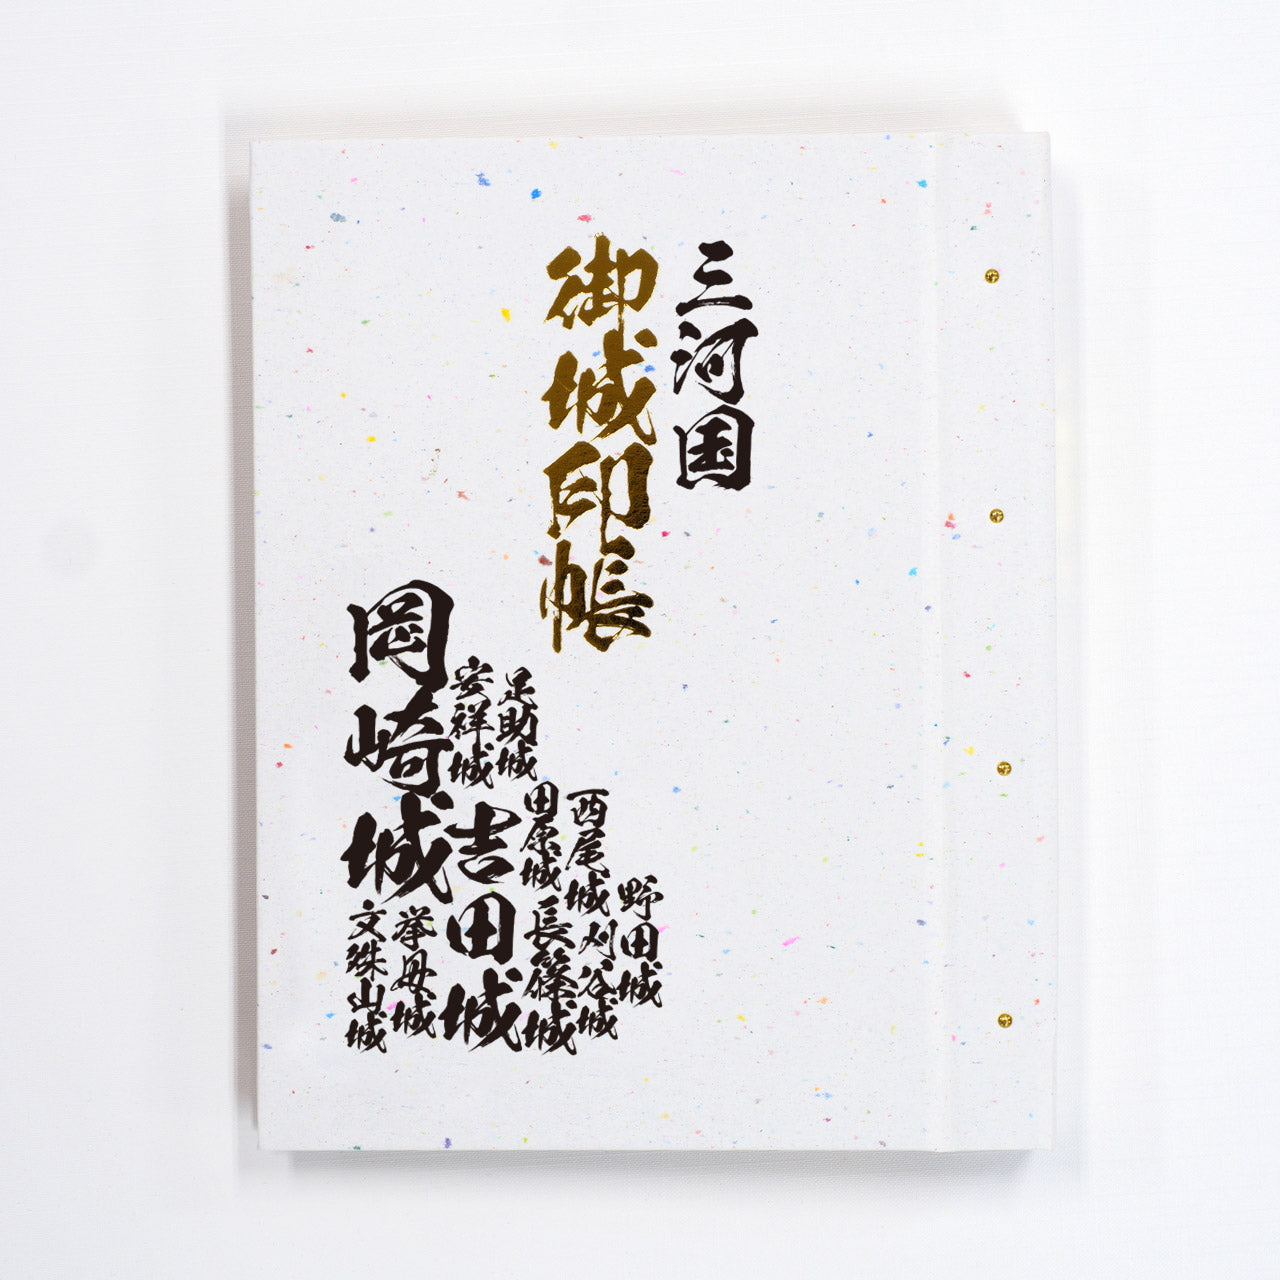 三河国
御城印帳
野田城
西尾城
刈谷城
足助城
田原城
長篠城
安祥城
吉田城
挙母城
岡崎城
文殊山城